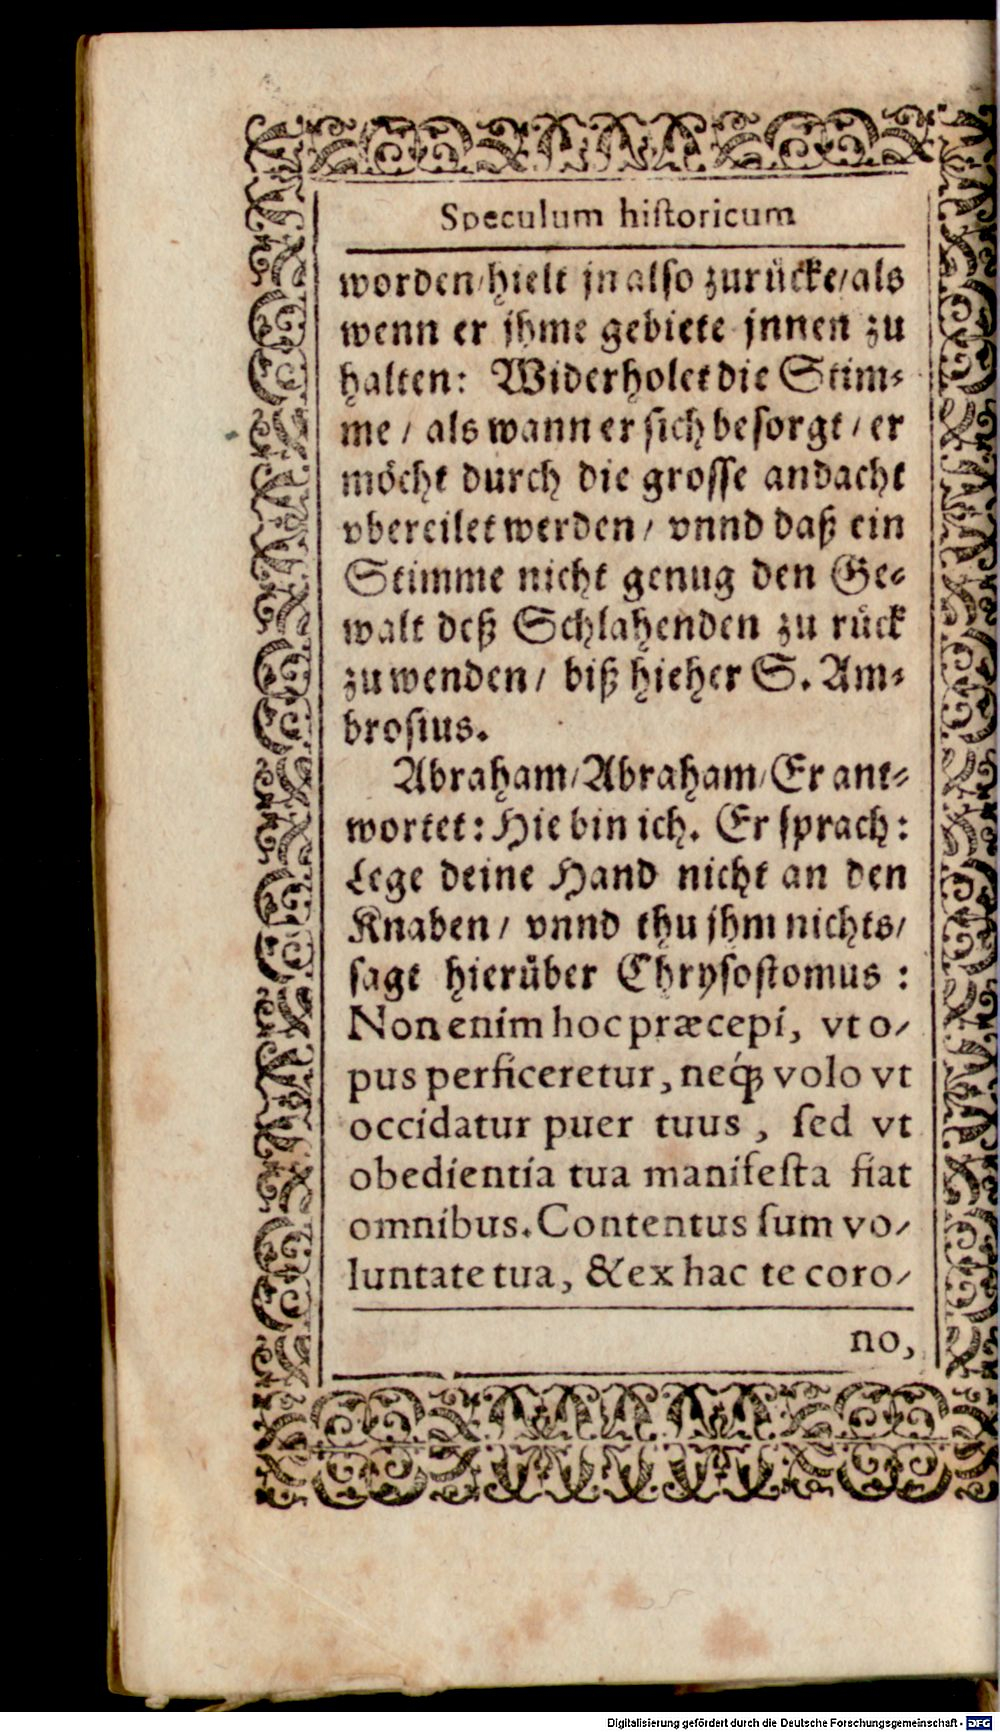 Speculum historicum
worden/hielt jn also zurücke/als
wenn er jhme gebiete jnnen zu
halten: Widerholet die Stim⸗
me / als wann er sich besorgt / er
möcht durch die grosse andacht
vbereilet werden / vnnd daß ein
Stimme nicht genug den Ge⸗
walt deß Schlahenden zu rück
zu wenden / biß hieher S. Am⸗
brosius.
Abraham/Abraham/Er ant⸗
wortet: Hie bin ich. Er sprach:
Lege deine Hand nicht an den
Knaben / vnnd thu jhm nichts/
sagt hierüber Chrysostomus:
Non enim hoc præcepi, vt o/
pus perficeretur, neq́; volo vt
occidatur puer tuus, sed vt
obedientia tua manifesta fiat
omnibus. Contentus sum vo/
luntate tua, & ex hac te coro/
no,
Digitalisierung gefördert durch die Deutsche Forschungsgemeinschaft - DFG